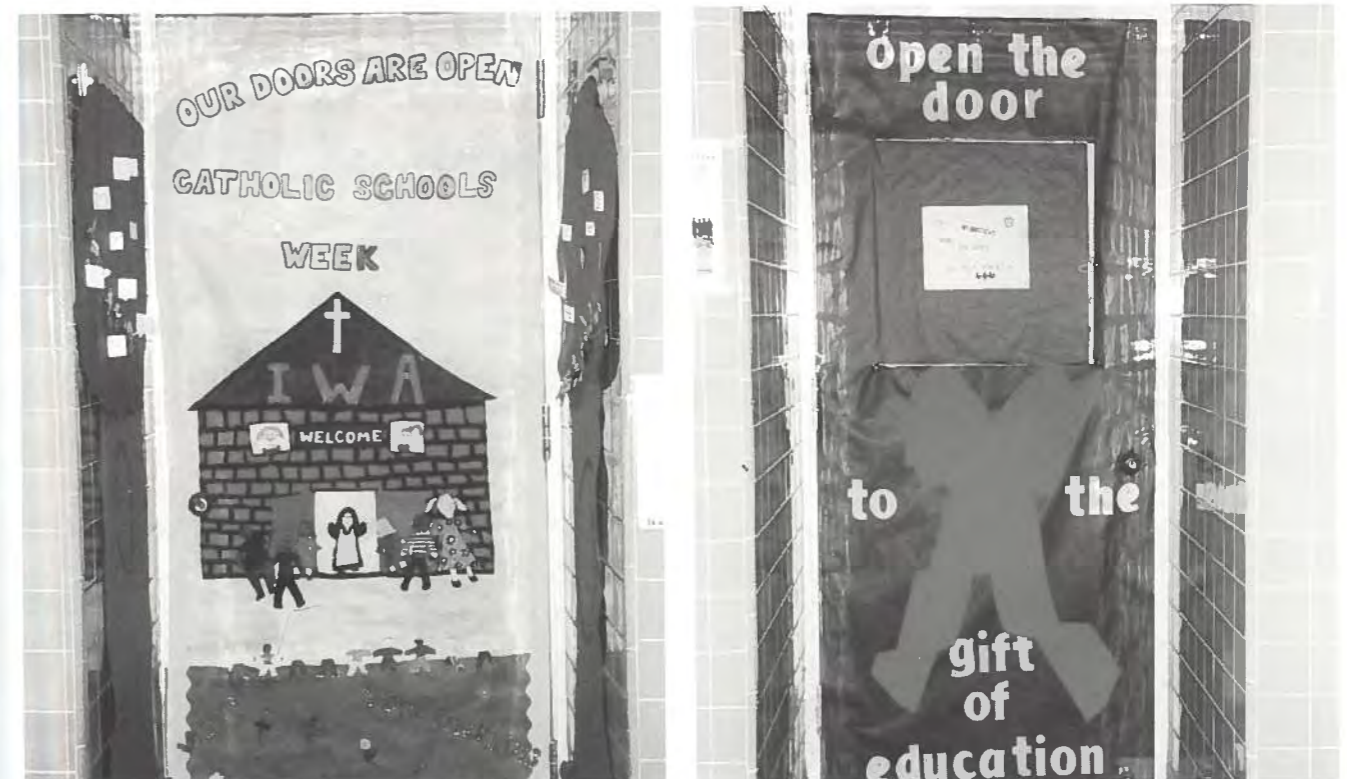 OUR DOORS ARE OPEN
CATHOLIC SCHOOLS
WEEK
IWA
WELCOME
open the
door
to the
gift
of
education